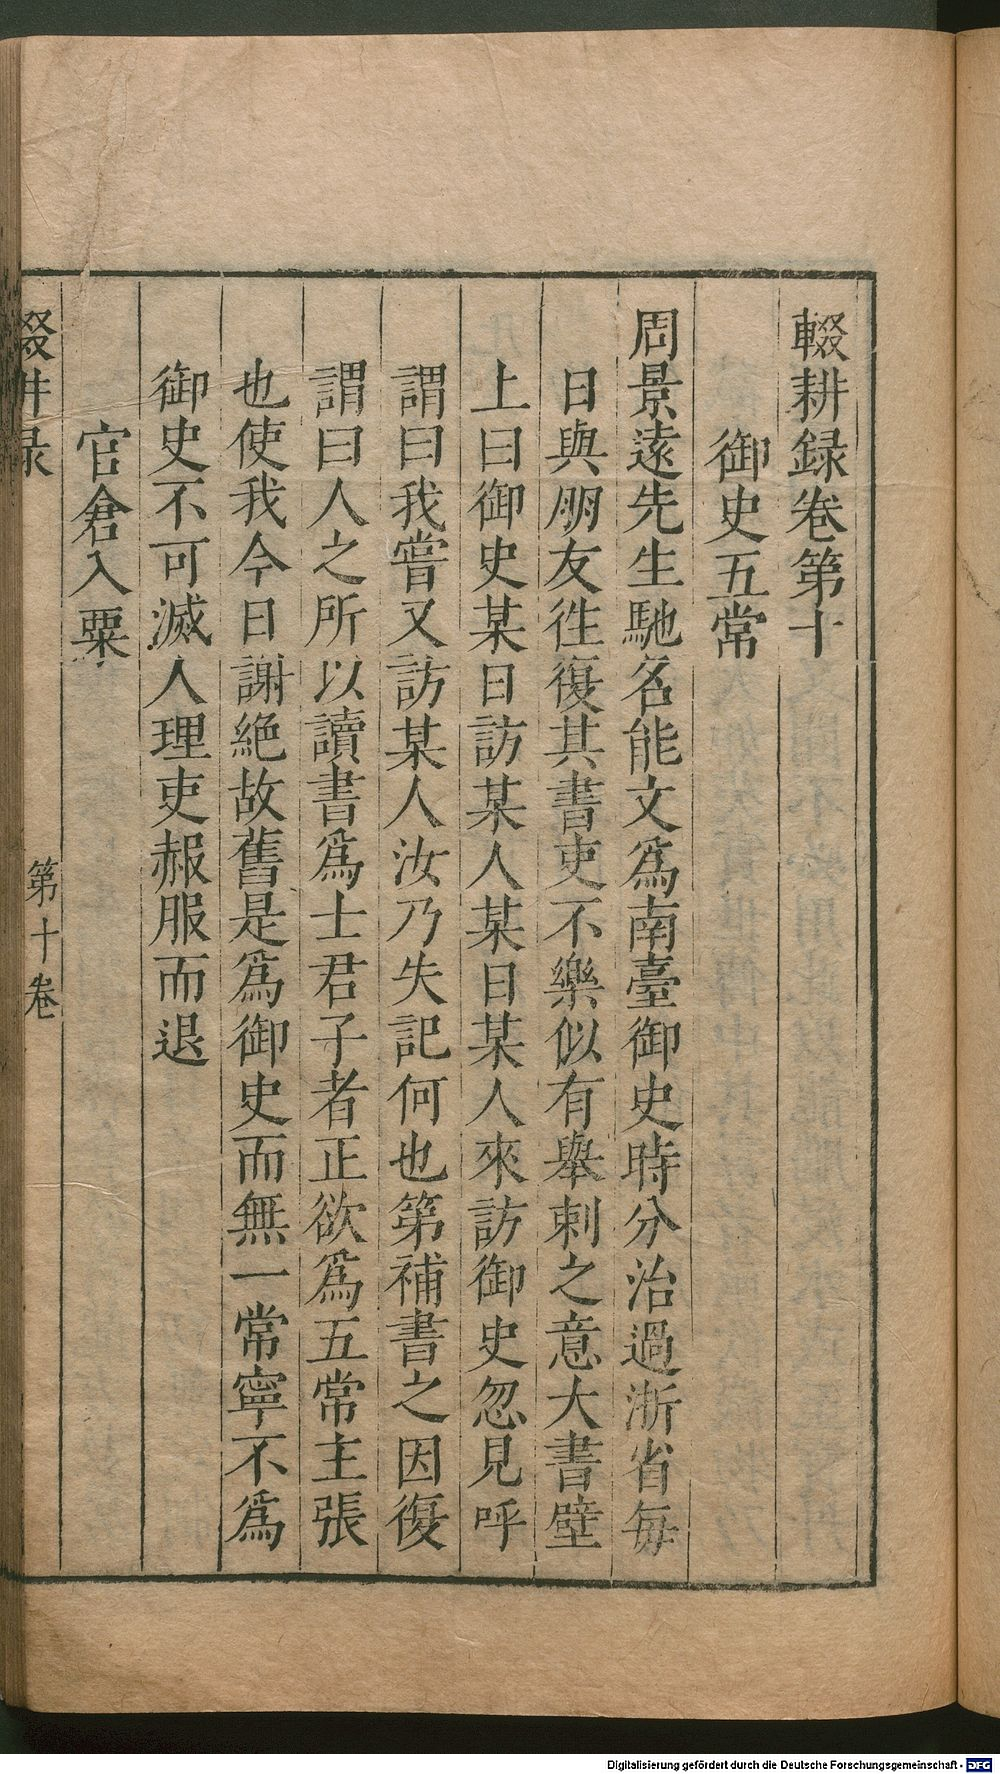 輟耕録卷第十
御史五常
周景遠先生馳名能文爲南臺御史時分治過浙省毎
日與朋友徃復其書吏不樂似有舉刺之意大書壁
上曰御史某日訪某人某日某人來訪御史忽見呼
謂曰我嘗又訪某人汝乃失記何也第補書之因復
謂曰人之所以讀書爲士君子者正欲爲五常主張
也使我今日謝絶故舊是爲御史而無一常寧不爲
御史不可滅人理吏赧服而退
官倉入粟
輟耕录
第十卷
Digitalisierung gefördert durch die Deutsche Forschungsgemeinschaft - DFG